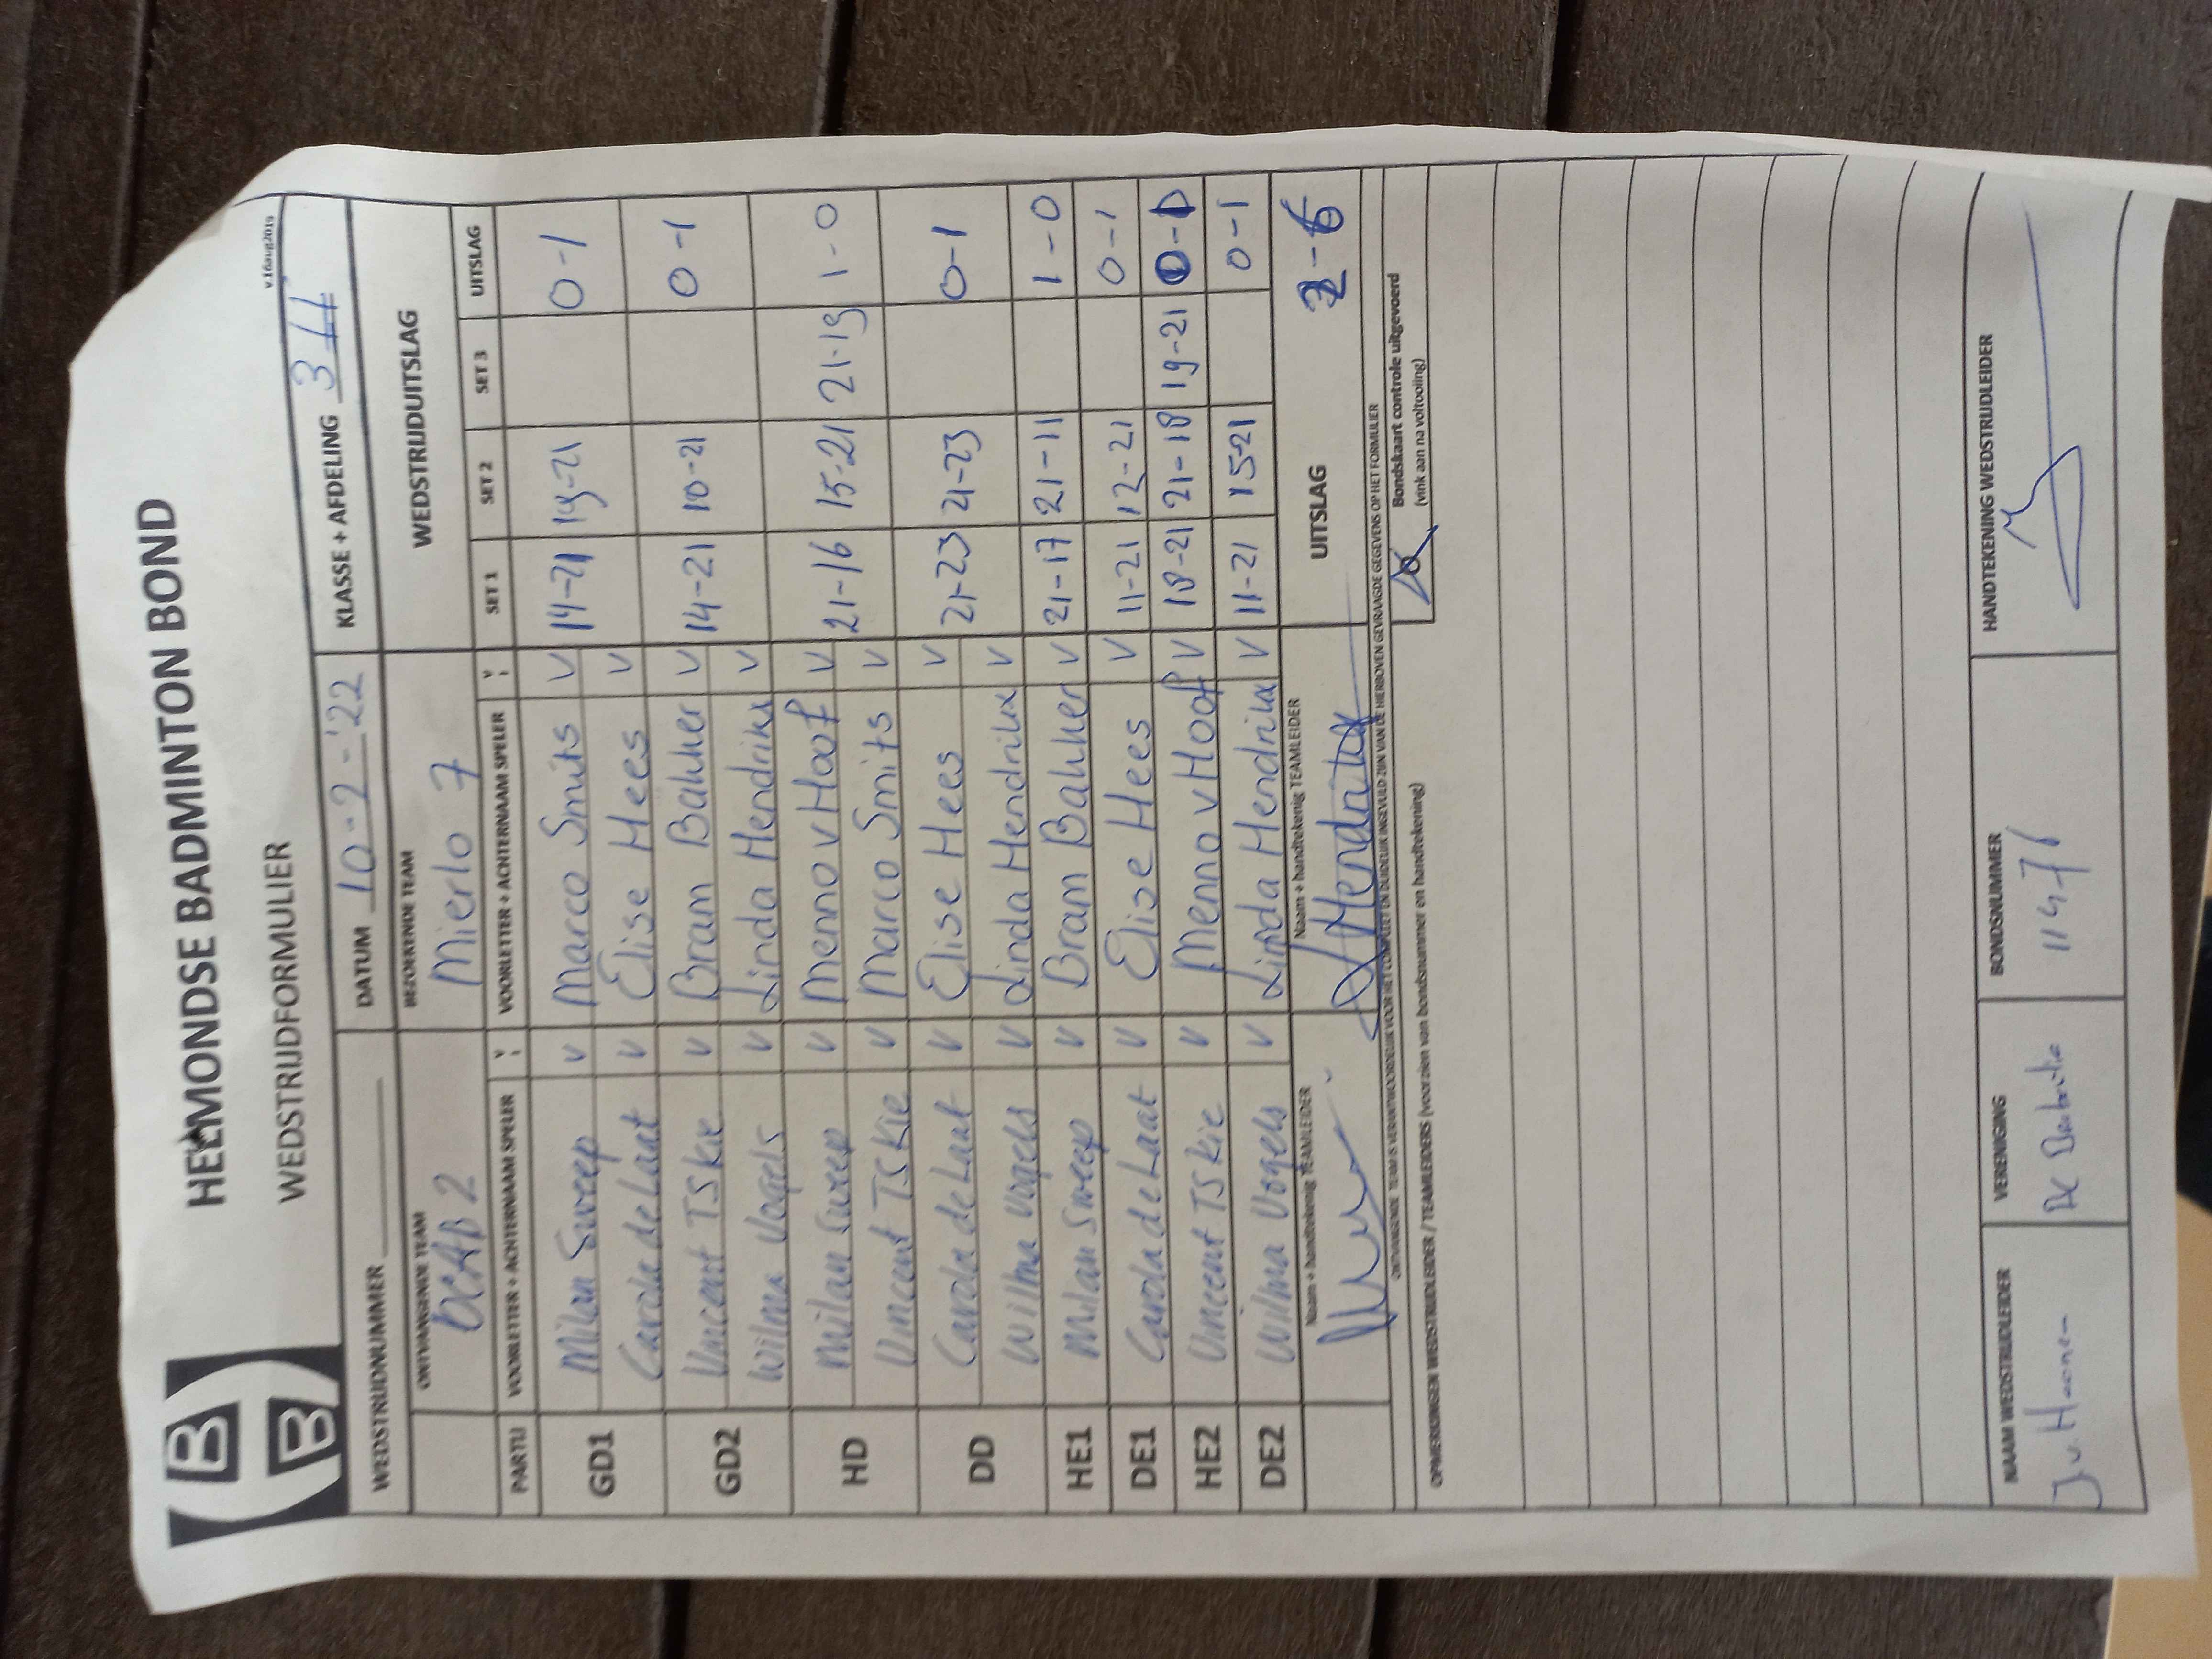 HELMONDSE BADMINTON BOND
WEDSTRIJDFORMULIER
v.16aug2019
WEDSTRIJDNUMMER
DATUM 10-2-'22
KLASSE + AFDELING 3
ONTVANGENDE TEAM
BEZOEKENDE TEAM
WEDSTRIJDUITSLAG
Mierlo 7
PARTIJ VOORLETTER + ACHTERNAAM SPELER V VOORLETTER + ACHTERNAAM SPELER V SET 1 SET 2 SET 3 UITSLAG
GD1 Milan Sweep V Marco Smits V 14-21 19-21 0-1
Carola de Laat V Elise Hees V
GD2 Vincent TSkie V Bram Bakker V 14-21 10-21 0-1
Wilma Vogels V Linda Hendrikx V
HD Milan Sweep V Menno v Hoof V 21-16 15-21 21-19 1-0
Vincent TSkie V Marco Smits V
DD Carola de Laat V Elise Hees V 21-23 21-23 0-1
Wilma Vogels V Linda Hendrikx V
HE1 Milan Sweep V Bram Bakker V 21-17 21-11 1-0
DE1 Carola de Laat V Elise Hees V 11-21 12-21 0-1
HE2 Vincent TSkie V Menno v Hoof V 18-21 21-18 19-21 0-1
DE2 Wilma Vogels V Linda Hendrikx V 11-21 15-21 0-1
Naam + handtekenig TEAMLEIDER
Naam + handtekenig TEAMLEIDER
UITSLAG 2-6
LHendrikx
ONTVANGENDE TEAM IS VERANTWOORDELIJK VOOR HET COMPLEET EN DUIDELIJK INGEVULD ZIJN VAN DE HIERBOVEN GEVRAAGDE GEGEVENS OP HET FORMULIER
OPMERKINGEN WEDSTRIJDLEIDER / TEAMLEIDERS (voorzien van bondsnummer en handtekening)
Bondskaart controle uitgevoerd
(vink aan na voltooiing)
NAAM WEDSTRIJDLEIDER VERENIGING BONDSNUMMER HANDTEKENING WEDSTRIJDLEIDER
J.v. De